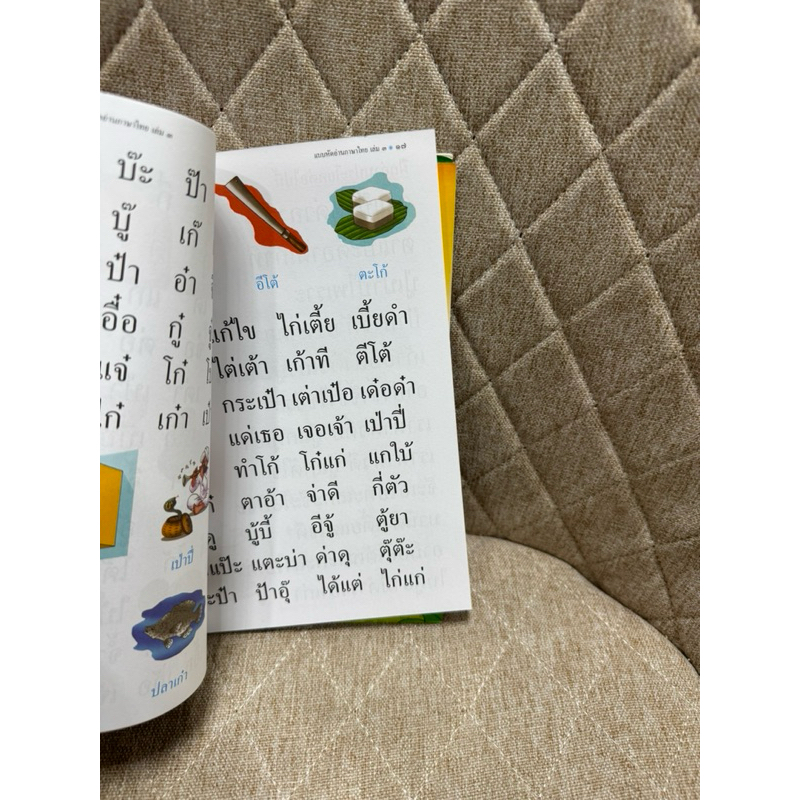 ภาษาไทย เล่ม ๓
บ๊ะ ป๊า
บู๊ เก๊
ป๋า อ๋า
อื๋อ กู๋
แจ๋ โก๋
เก๋า
เป่าปี่
ปลาเก๋า
แบบหัดอ่านภาษาไทย เล่ม ๓ ๑๗
อีโต้ ตะโก้
แก้ไข ไก่เตี้ย เบี้ยดำ
ไต่เต้า เก้าที ตีโต้
กระเป๋า เต่าเป๋อ เด๋อด๋า
แด่เธอ เจอเจ้า เป่าปี่
ทำโก้ โก๋แก่ แกใบ้
ตาอ้า จ่าดี กี่ตัว
บู้บี้ อีจู้ ตู้ยา
แป๊ะ แตะบ่า ด่าดุ ตุ๊ต๊ะ
ป้าอุ๊ ได้แต่ ไก่แก่